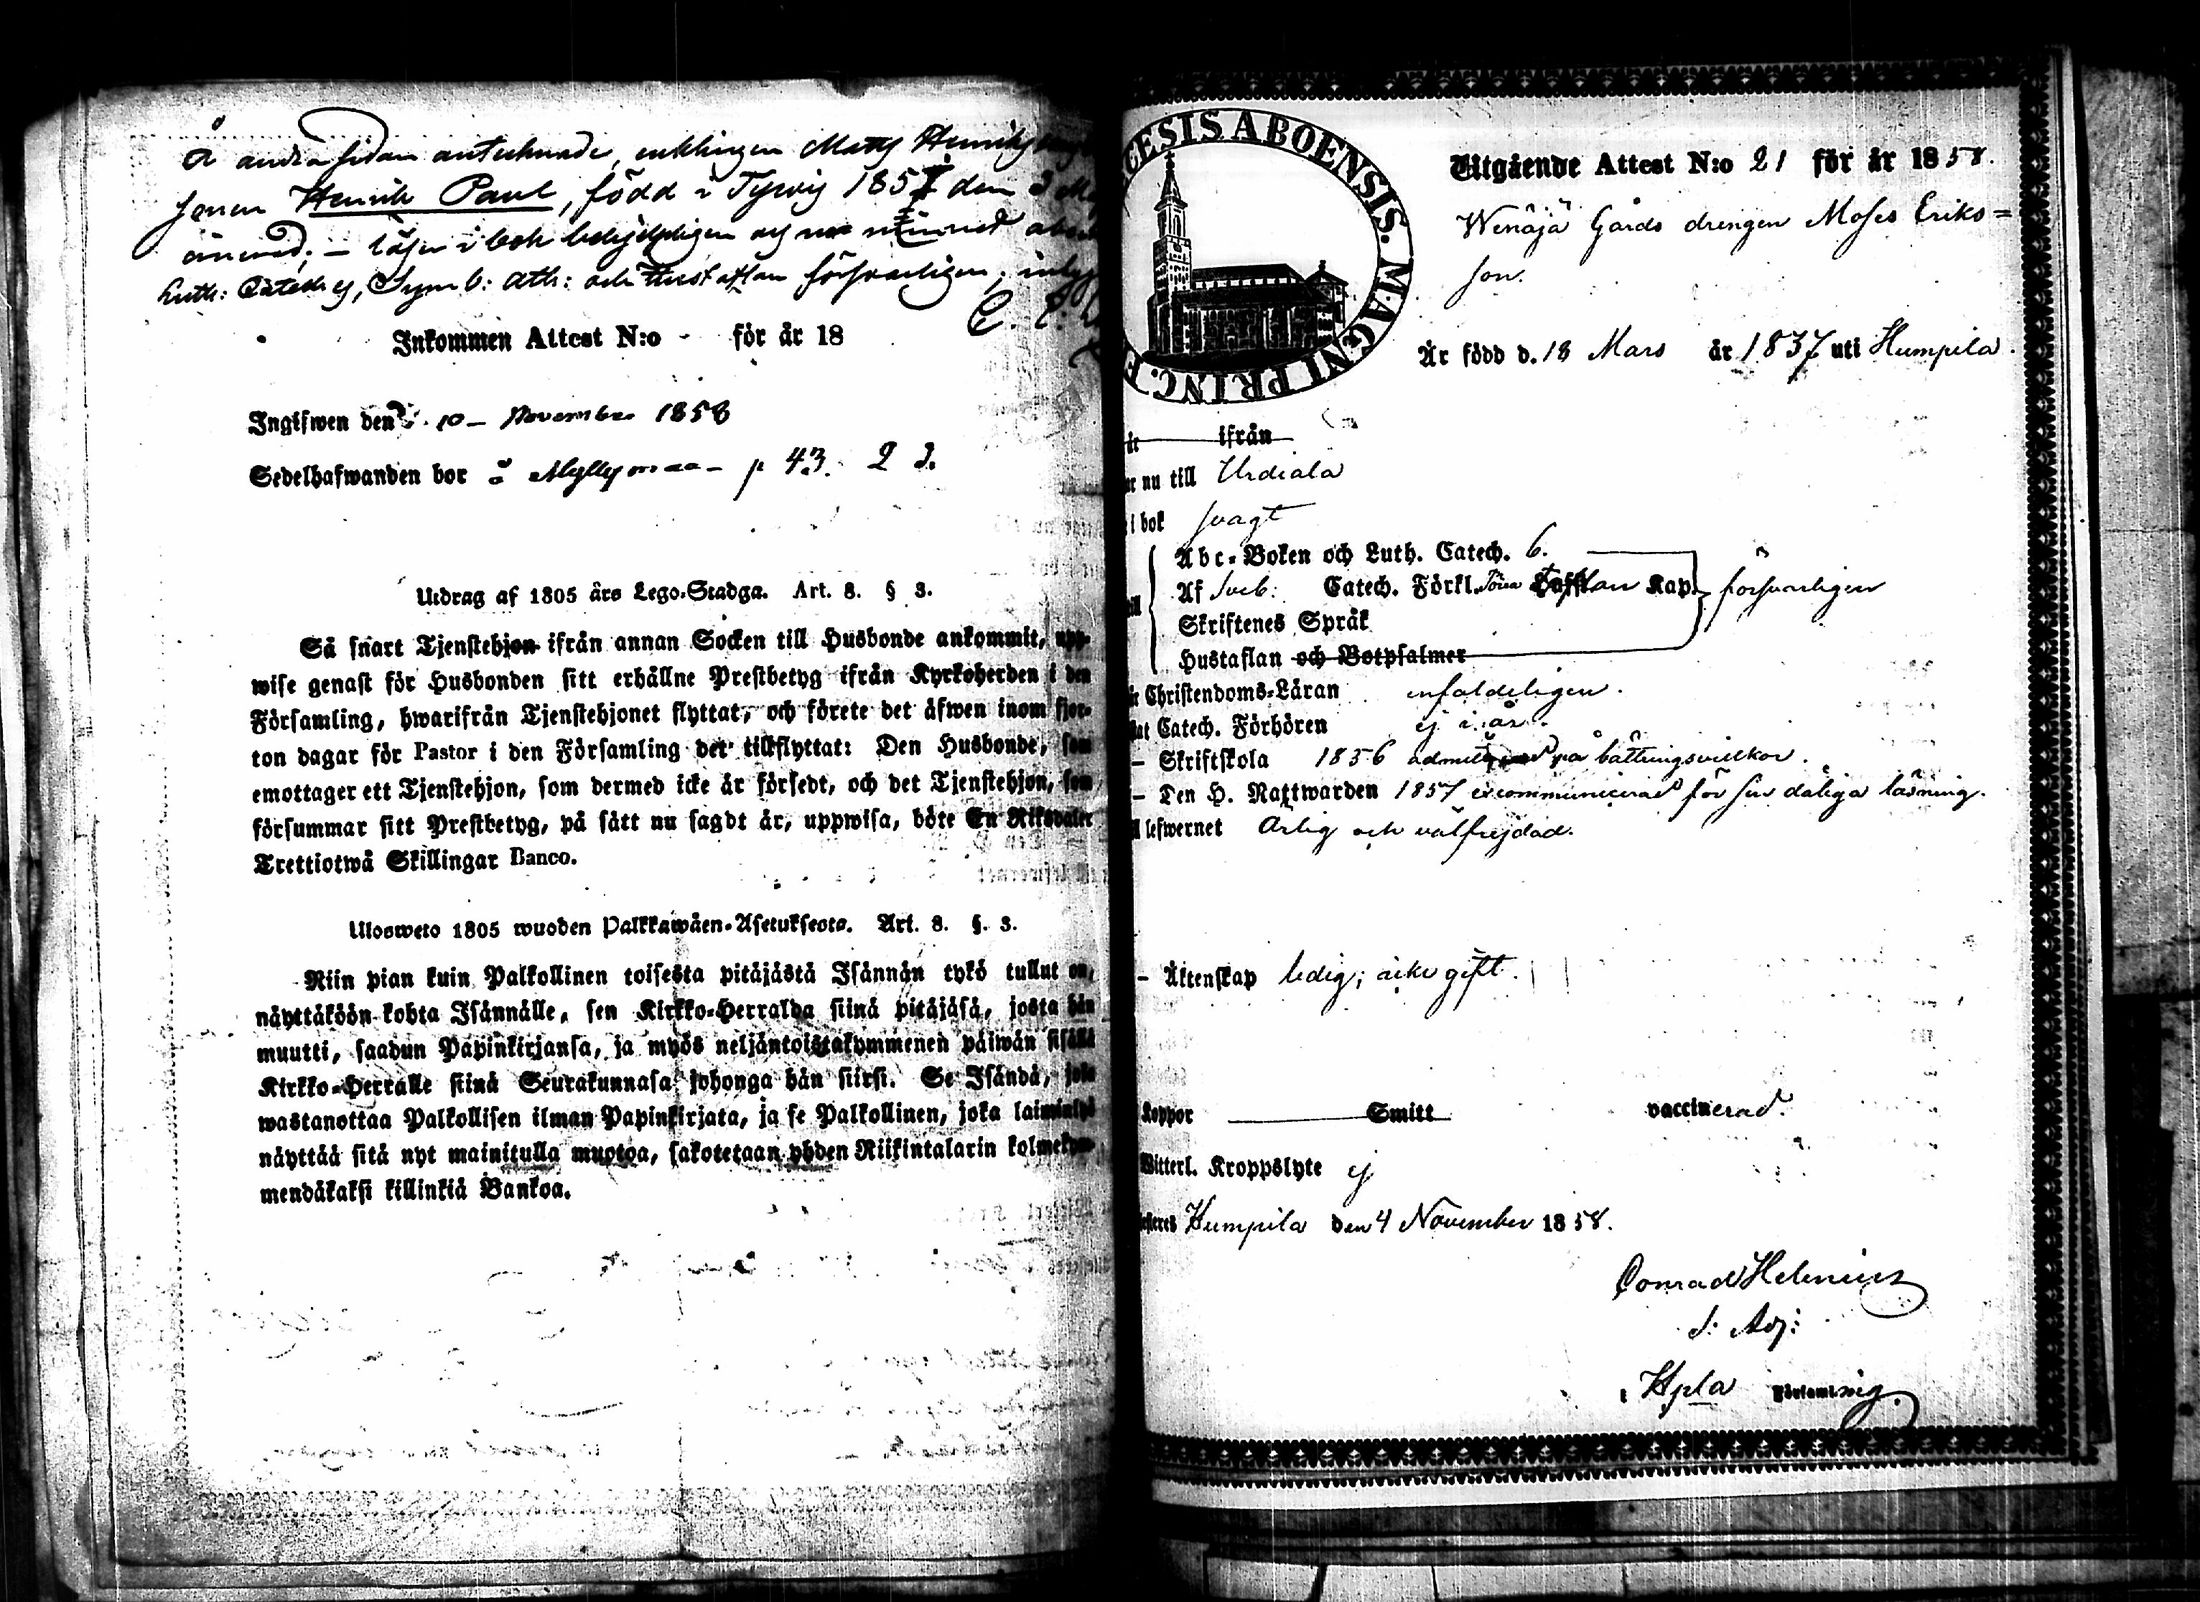 Å andra sidan antecknade, enklingen Matts Henriks
sonen Henrik Paul, född i Tyrvis 185 den 3
läser i bok behjelpligen
Luth: Cateches, Symb: Ath: och Hustaflan försvarligen;
Inkommen Attest N:o - för år 18
Ingifwen den 10 - November 1858
Sedelhafwanden bor å Myllymaa - p 43.
Utdrag af 1805 års Lego-Stadga. Art. 8. § 3.
Så snart Tjenstehjon ifrån annan Socken till Husbonde ankommit, upp-
wise genast för Husbonden sitt erhållne Prestbetyg ifrån Kyrkoherden i den
Församling, hwarifrån Tjenstehjonet flyttat, och förete det äfwen inom fjor-
ton dagar för Pastor i den Församling det tillflyttat: Den Husbonde, som
emottager ett Tjenstehjon, som dermed icke är försedt, och det Tjenstehjon, som
försummar sitt Prestbetyg, på sätt nu sagdt är, uppwisa, böte En Riksdaler
Trettiotwå Skillingar Banco.
Ulosweto 1805 wuoden Palkkawäen-Asetuksesta. Art. 8. §. 3.
Niin pian kuin Palkollinen toisesta pitäjästä Isännän tykö tullut on,
näyttäköön kohta Isännälle, sen Kirkko-Herralda siinä pitäjäsä, josta hän
muutti, saadun Papinkirjansa, ja myös neljäntoistakymmenen päiwän sisällä
Kirkko-Herralle siinä Seurakunnasa johonga hän siirsi. Se Isändä, joka
wastanottaa Palkollisen ilman Papinkirjata, ja se Palkollinen, joka laiminlyö
näyttää sitä nyt mainitulla muotoa, sakotetaan yhden Riikintalarin kolmekym-
mendäkaksi killinkiä Bankoa.
CESIS ABOENSIS. MAGNI PRINC. F
Utgående Attest N:o 21 för år 1858.
Wenäjä Gårds drengen Moses Eriks=
son.
Är född d. 18 Mars år 1837 uti Humpila.
ifrån
nu till Urdiala
i bok svagt
Abc-Boken och Luth. Catech. 6.
Af Sveb: Catech. Förkl. Kap. försvarligen
Skriftenes Språk
Hustaflan och Botpsalmer
Christendoms-Läran enfaldeligen.
Catech. Förhören ej i år.
- Skriftskola 1856 på bättringsvilkor.
- Den H. Nattwarden 1857 excommunicerad för sin dåliga läsning.
lefwernet Ärlig och välfrejdad.
- Äktenskap ledig; icke gift.
Koppor Smitt vaccinerad.
Witterl. Kroppslyte ej
Humpila den 4 November 1858.
Conrad Helenius
S: Adj:
i Hpla Församling.